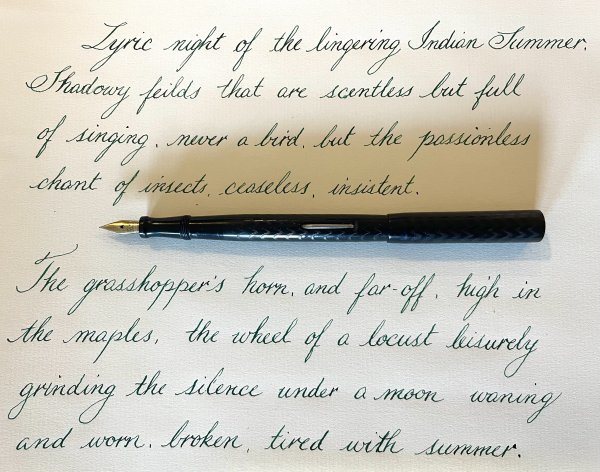 Lyric night of the lingering Indian Summer.
Shadowy feilds that are scentless but full
of singing, never a bird, but the passionless
chant of insects, ceaseless, insistent.
The grasshopper's horn, and far-off, high in
the maples, the wheel of a locust leisurely
grinding the silence under a moon waning
and worn, broken, tired with summer.